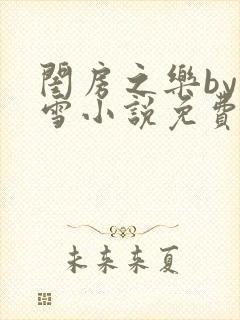 閨房之樂by
雪小說免費
未來來夏